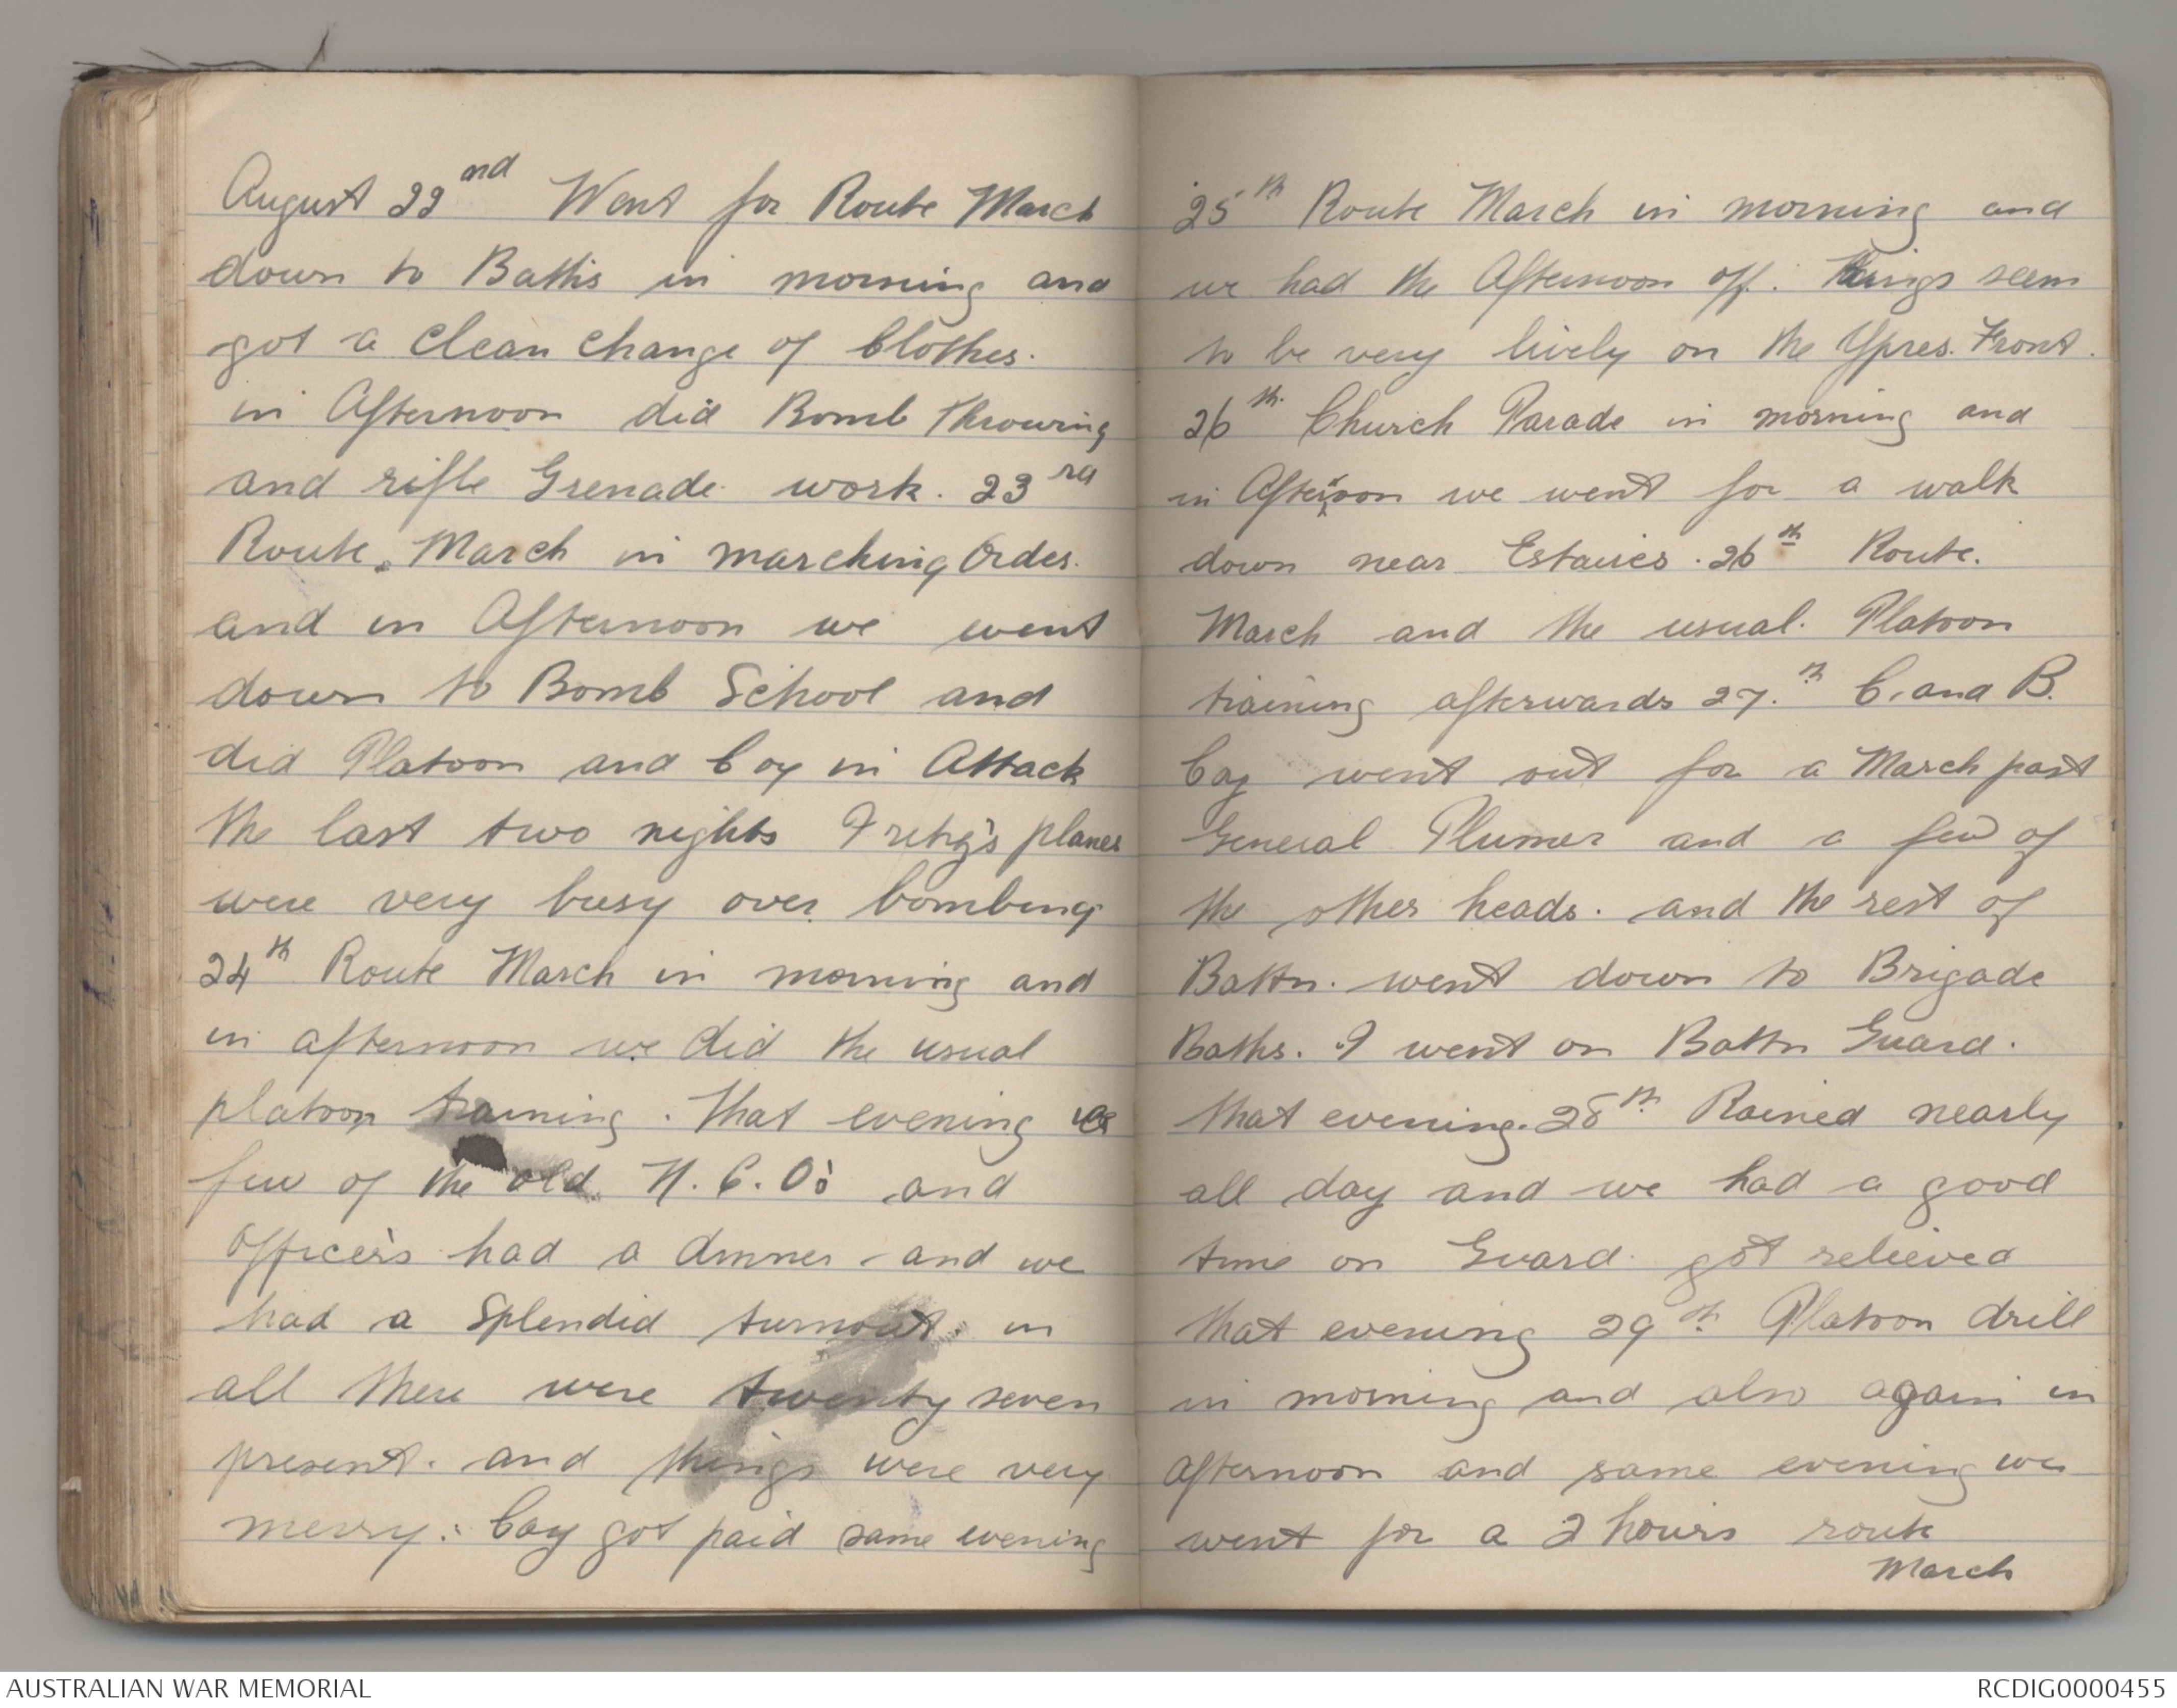 August 22nd Went for Route March
down to Baths in morning and
got a clean change of Clothes.
in Afternoon did Bomb Throwing
and rifle Grenade work. 23rd
Route March in marching Order.
and in Afternoon we went
down to Bomb School and
did Platoon and Coy in Attack
the last two nights Fritz's planes
were very busy over bombing
24th Route March in morning and
in afternoon we did the usual
platoon training. That evening
few of the old N.C.O's and
Officers had a dinner and we
had a Splendid turnout. in
all there were twenty seven
present. and things were very
merry. Coy got paid same evening
25th Route March in morning and
we had the Afternoon off. Things seem
to be very lively on the Ypres. Front.
26th Church Parade in morning and
in Afternoon we went for a walk
down near Estaires. 26th Route.
March and the usual. Platoon
training afterwards 27.th C. and B.
Coy went out for a March past
General Plumer and a few of
the other heads. and the rest of
Battn. went down to Brigade
Baths. I went on Battn Guard.
that evening. 28th Rained nearly
all day and we had a good
time on Guard. got relieved
that evening 29th Platoon drill
in morning and also again in
afternoon and same evening we
went for a 2 hours route
March
AUSTRALIAN WAR MEMORIAL
RCDIG0000455